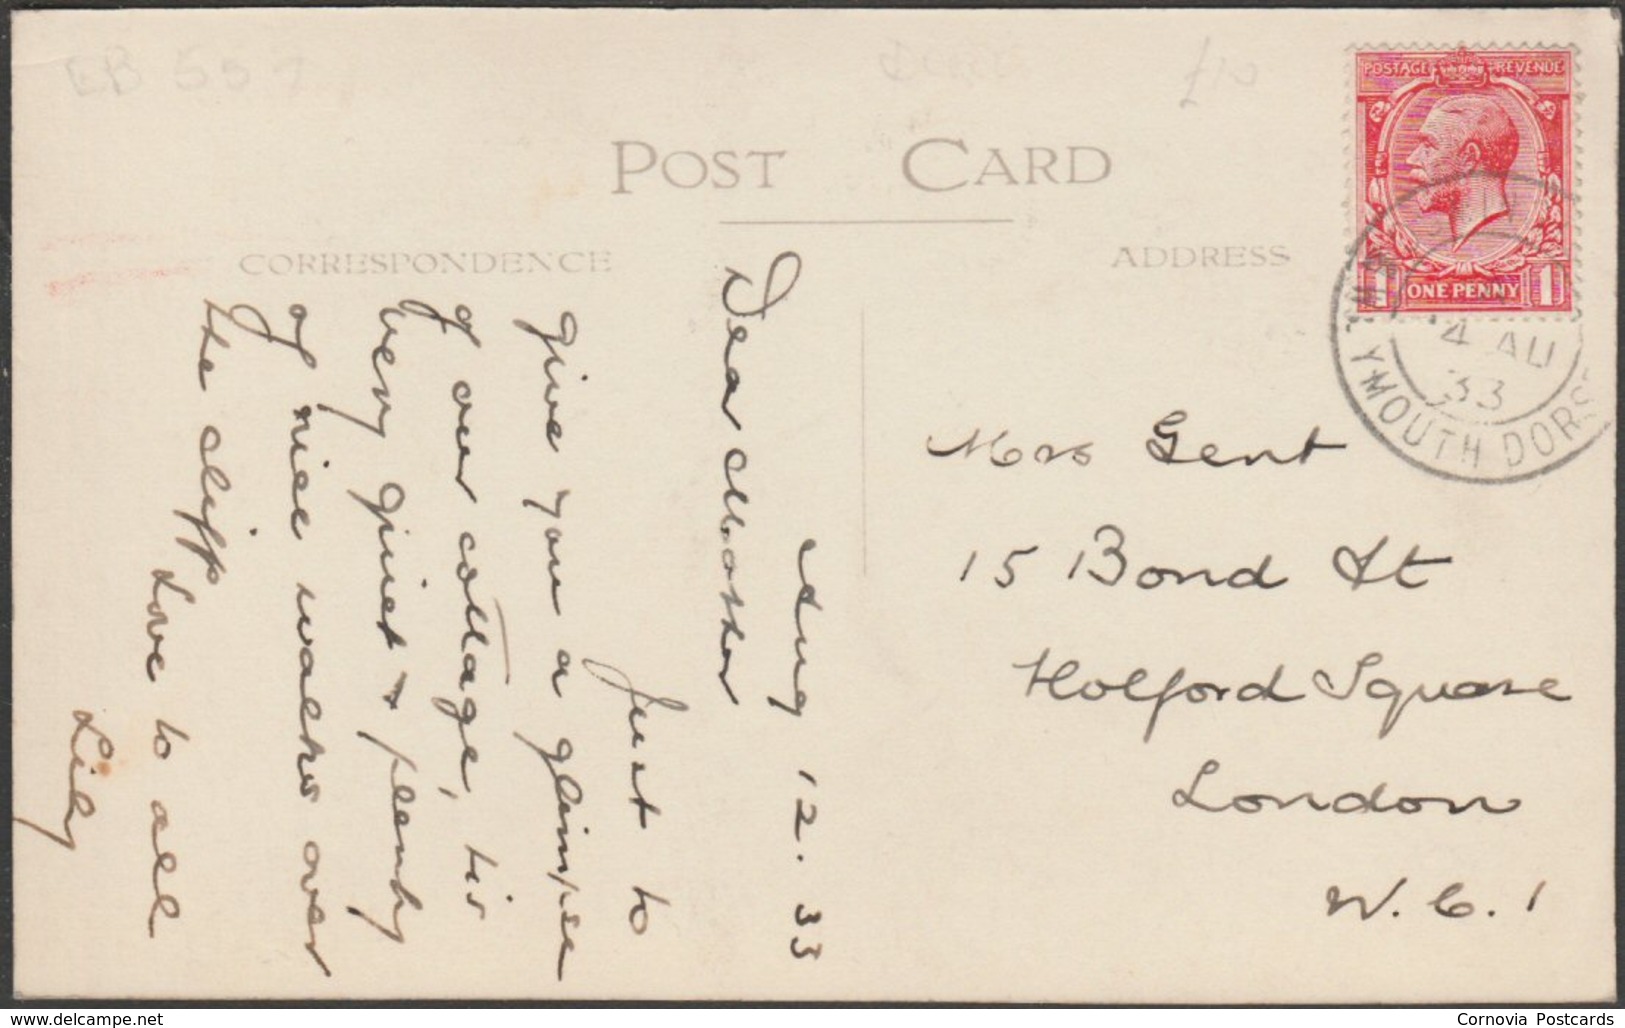 EB 557
£10
POST CARD
CORRESPONDENCE
ADDRESS
POSTAGE REVENUE
1 ONE PENNY 1
4 AU
33
WEYMOUTH DORS
Aug 12. 33
Dear Mother
Just to
give you a glimpse
of our cottage, tis
very quiet & plenty
of nice walks over
the cliffs
Love to all
Lily
Mrs Gent
15 Bond St
Holford Square
London
W.C.1
www.delcampe.net
Cornovia Postcards